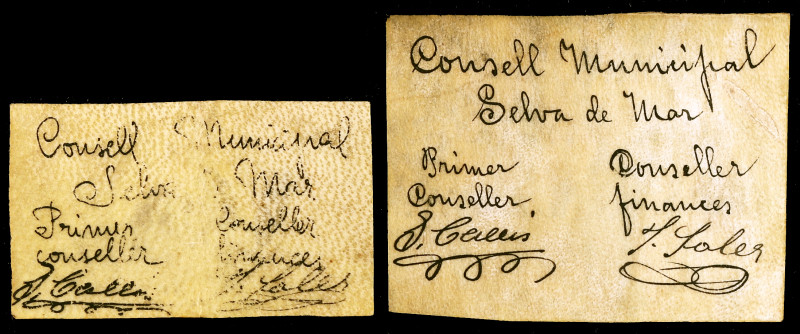 Consell Municipal
Selva de Mar
Primer Conseller
conseller finances
J. Soler
Consell Municipal
Selva de Mar
Primer Conseller
Conseller finances
J. Soler